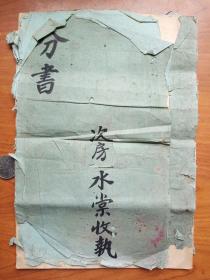 分書
次房水棠收執